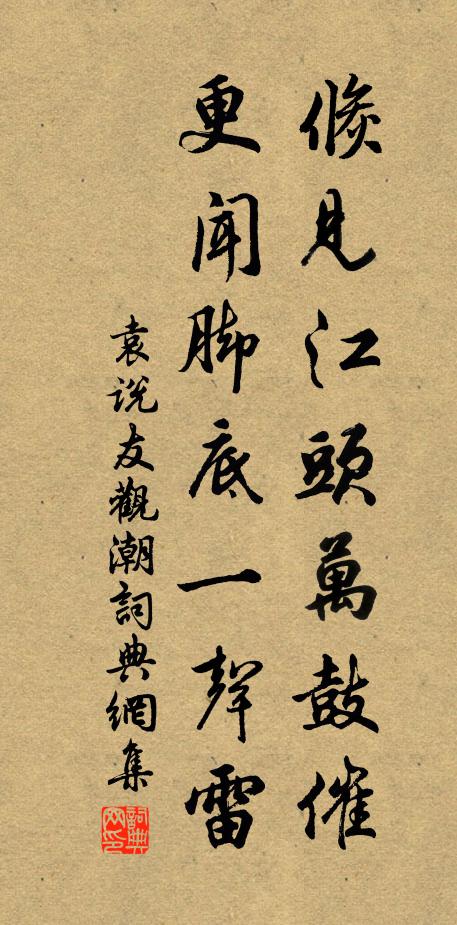 倐見江頭萬鼓催
更聞脚底一聲雷
袁説友觀潮詞典網集
詞典
网印